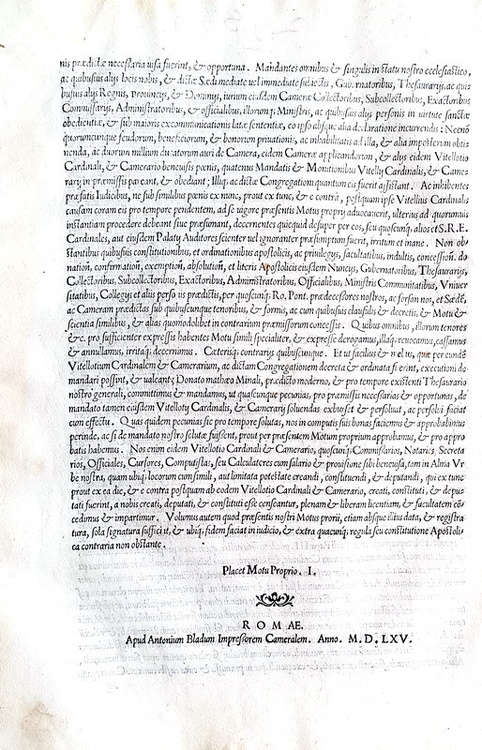 nis prædictæ necessaria visa fuerint, & opportuna. Mandantes omnibus & singulis in statu nostro ecclesiastico,
ac quibusuis alijs locis nobis, & dictæ Sedi mediate vel immediate subiectis, Gubernatoribus, Thesaurarijs, ac qui
busuis alijs Regnis, Prouincijs, & Dominijs, iurium eiusdem Cameræ Collectoribus, Subcollectoribus, Exactoribus
Commissarijs, Administratoribus, & officialibus, illorumq; Ministris, ac quibusuis alijs personis in virtute sanctæ
obedientiæ, & sub maioris excommunicationis latæ sententiæ, eo ipso absque alia declaratione incurrendis: Necnō
quorumcunque feudorum, beneficiorum, & honorum priuationis, ac inhabilitatis ad illa, & alia imposterum obti
nenda, ac duorum millium ducatorum auri de Camera, eidem Cameræ applicandorum, & alijs eidem Vitellotio
Cardinali, & Camerario beneuisis pœnis, quatenus Mandatis & Monitionibus Vitellij Cardinalis, & Came
rarij in præmissis pareant, & obediant; Illiq; ac dictæ Congregationi quantum eis fuerit assistant. Ac inhibentes
præfatis Iudicibus, ne sub similibus pœnis ex nunc, prout ex tunc, & e contra, postquam ipse Vitellius Cardinalis
causam coram eis pro tempore pendentem, ad se vigore præsentis Motus proprij aduocauerit, vlterius ad quorumuis
instantiam procedere debeant siue præsumant, decernentes quicquid desuper per eos, seu quoscunq; alios et S.R.E.
Cardinales, aut eiusdem Palatij Auditores scienter vel ignoranter præsumptum fuerit, irritum et inane. Non ob
stantibus quibusuis constitutionibus, et ordinationibus apostolicis, ac priuilegijs, facultatibus, indultis, concession. do
nation, confirmation, exemption, absolution, et literis Apostolicis eiusdem Nuncijs, Gubernatoribus, Thesaurarijs,
Collectoribus, Subcollectoribus, Exactoribus, Administratoribus, Officialibus, Ministris Communitatibus, Vniuer
sitatibus, Collegijs et alijs personis prædictis, per quoscunq; Ro. Pont. prædecessores nostros, ac forsan nos, et Sedē,
ac Cameram prædictas sub quibuscunque tenoribus, & formis, ac cum quibusuis clausulis & decretis, & Motu &
scientia similibus, & alias quomodolibet in contrarium præmissorum concessis. Quibus omnibus, illorum tenores
&c. pro sufficienter expressis habentes Motu simili specialiter, & expresse derogamus, illaq; reuocamus, cassamus
& annullamus, irritaq; decernimus. Cæterisq; contrarijs quibuscunque. Et ut facilius & melius, quæ per eundē
Vitellotium Cardinalem & Camerarium, ac dictam Congregationem decreta & ordinata fuerint, executioni de
mandari possint, & ualeant; Donato mathæo Minali, prædicto moderno, & pro tempore existenti Thesaurario
nostro generali, committimus & mandamus, ut quascunque pecunias, pro præmissis necessarias & opportunas, de
mandato tamen eiusdem Vitellotij Cardinalis, & Camerarij soluendas exbursēt & persoluat, ac persolui faciat
cum effectu. Quas quidem pecunias sic pro tempore solutas, nos in computis suis bonas faciemus & approbabimus
perinde, ac si de mandato nostro solutæ fuissent, prout per præsentem Motum proprium approbamus, & pro appro
batis habemus. Nos enim eidem Vitellotio Cardinali & Camerario, quoscunq; Commissarios, Notarios, Secreta
rios, Officiales, Cursores, Computistas, seu Calculatores cum salario & prouisione sibi beneuisa, tam in Alma Vr
be nostra, quam ubiq; locorum cum simili, aut limitata potestate creandi, constituendi, & deputandi, qui ex tunc
prout ex ea die, & e contra postquam ab eodem Vitellotio Cardinali & Camerario, creati, constituti, & depu-
tati fuerint, a nobis creati, deputati, & constituti esse censeantur, plenam & liberam licentiam, & facultatem cō-
cedimus & impartimur. Volumus autem quod præsentis nostri Motus proprij, etiam absque illius data, & registra
tura, sola signatura sufficiat, & ubiq; fidem faciat in iudicio, & extra quacunq; regula seu constitutione Apostoli-
ca contraria non obstante.
Placet Motu Proprio. I.
ROMAE.
Apud Antonium Bladum Impressorem Cameralem. Anno. M. D. LXV.